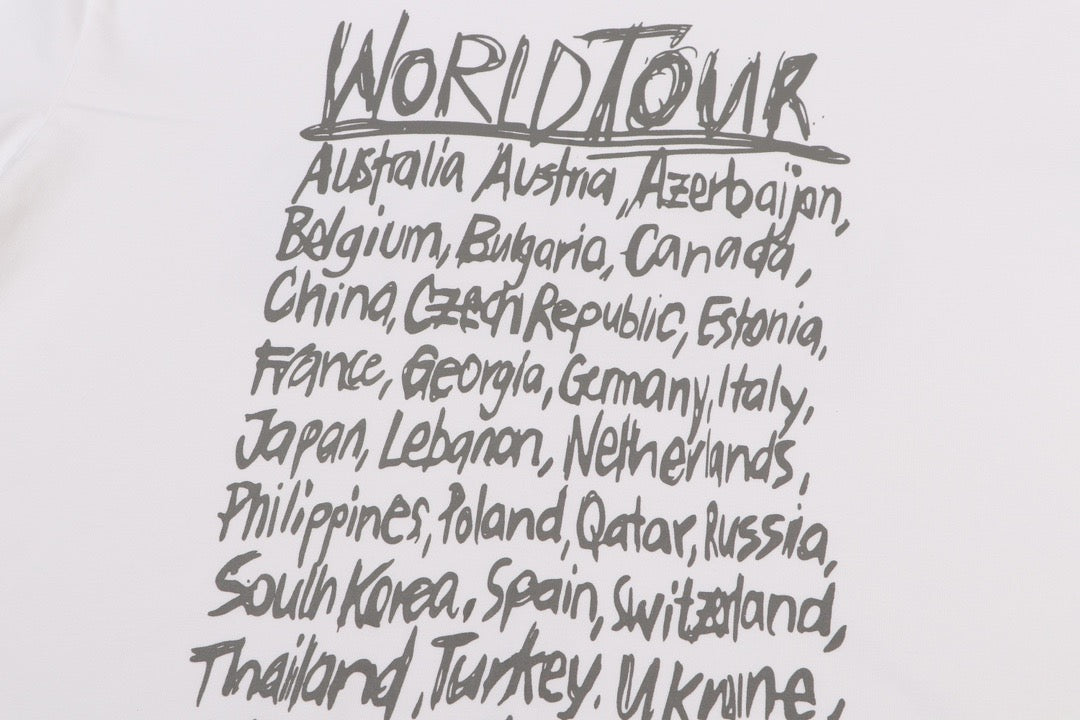 WORLD TOUR
Australia Austria, Azerbaijan,
Belgium, Bulgaria, Canada,
China, Czech Republic, Estonia,
France, Georgia, Germany, Italy,
Japan, Lebanon, Netherlands,
Philippines, Poland, Qatar, Russia,
South Korea, Spain, Switzerland,
Thailand, Turkey. Ukraine,